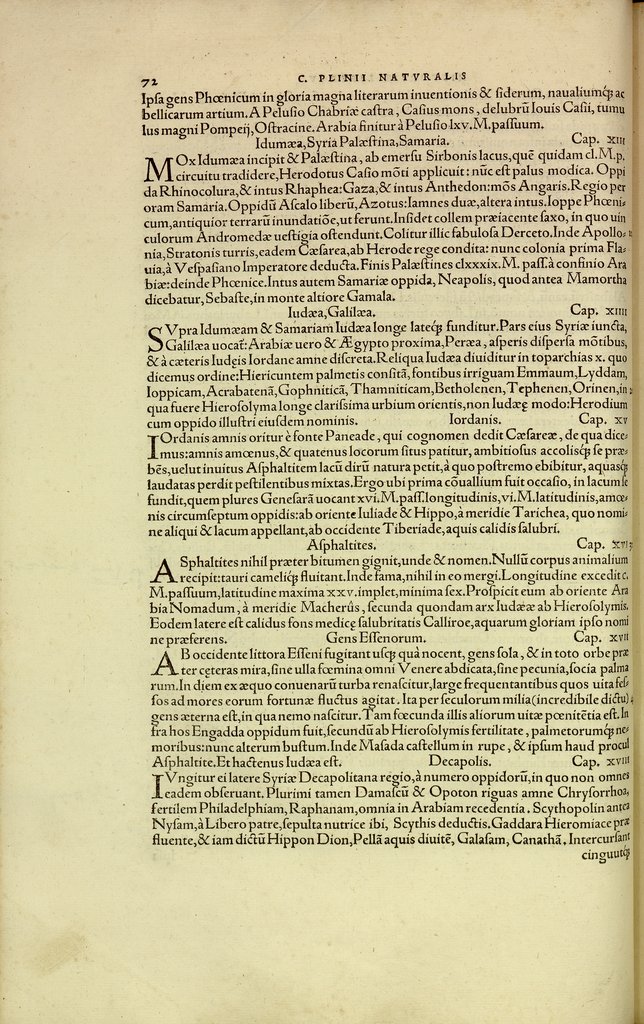 72 C. PLINII NATVRALIS
Ipſa gens Phœnicum in gloria magna literarum inuentionis & ſiderum, naualiumꝗ̃ ac
bellicarum artium. A Peluſio Chabriæ caſtra, Caſius mons, delubrũ Iouis Caſii, tumu
lus magni Pompeij, Oſtracine. Arabia finitur à Peluſio lxv. M. paſſuum.
Idumæa, Syria Palæſtina, Samaria. Cap. xiii
MOx Idumæa incipit & Palæſtina, ab emerſu Sirbonis lacus, quẽ quidam cl. M. p.
circuitu tradidere, Herodotus Caſio mõti applicuit: nũc eſt palus modica. Oppi
da Rhinocolura, & intus Rhaphea: Gaza, & intus Anthedon: mõs Angaris. Regio per
oram Samaria. Oppidũ Aſcalo liberũ, Azotus: Iamnes duæ, altera intus. Ioppe Phœni⸗
cum, antiquior terrarũ inundatiõe, ut ferunt. Inſidet collem præiacente ſaxo, in quo uin
culorum Andromedæ ueſtigia oſtendunt. Colitur illic fabuloſa Derceto. Inde Apollo⸗
nia, Stratonis turris, eadem Cæſarea, ab Herode rege condita: nunc colonia prima Fla⸗
uia, à Veſpaſiano Imperatore deducta. Finis Palæſtines clxxxix. M. paſſ. à confinio Ara
biæ: deinde Phœnice. Intus autem Samariæ oppida, Neapolis, quod antea Mamortha
dicebatur, Sebaſte, in monte altiore Gamala.
Iudæa, Galilæa. Cap. xiiii
SVpra Idumæam & Samariam Iudæa longe lateꝗ̃ funditur. Pars eius Syriæ iuncta,
Galilæa uocat̃: Arabiæ uero & Ægypto proxima, Peræa, aſperis diſperſa mõtibus,
& à cæteris Iudęis Iordane amne diſcreta. Reliqua Iudæa diuiditur in toparchias x. quo
dicemus ordine: Hiericuntem palmetis conſitã, fontibus irriguam Emmaum, Lyddam,
Ioppicam, Acrabatenã, Gophniticã, Thamniticam, Betholenen, Tephenen, Orinen, in
qua fuere Hieroſolyma longe clariſſima urbium orientis, non Iudææ modo: Herodium
cum oppido illuſtri eiuſdem nominis. Iordanis. Cap. xv
IOrdanis amnis oritur è fonte Paneade, qui cognomen dedit Cæſareæ, de qua dice⸗
mus: amnis amœnus, & quatenus locorum ſitus patitur, ambitioſus accoliſꝗ̃ ſe præ⸗
bẽs, uelut inuitus Aſphaltitem lacũ dirũ natura petit, à quo poſtremo ebibitur, aquasꝗ̃
laudatas perdit peſtilentibus mixtas. Ergo ubi prima cõuallium fuit occaſio, in lacum ſe
fundit, quem plures Geneſarã uocant xvi. M. paſſ. longitudinis, vi. M. latitudinis, amœ⸗
nis circumſeptum oppidis: ab oriente Iuliade & Hippo, à meridie Tarichea, quo nomi⸗
ne aliqui & lacum appellant, ab occidente Tiberiade, aquis calidis ſalubri.
Aſphaltites. Cap. xvi
ASphaltites nihil præter bitumen gignit, unde & nomen. Nullũ corpus animalium
recipit: tauri cameliꝗ̃ fluitant. Inde fama, nihil in eo mergi. Longitudine excedit c.
M. paſſuum, latitudine maxima xxv. implet, minima ſex. Proſpicit eum ab oriente Ara
bia Nomadum, à meridie Macherũs, ſecunda quondam arx Iudææ ab Hieroſolymis.
Eodem latere eſt calidus fons medicę ſalubritatis Calliroe, aquarum gloriam ipſo nomi
ne præferens. Gens Eſſenorum. Cap. xvii
AB occidente littora Eſſeni fugitant uſꝗ̃ quà nocent, gens ſola, & in toto orbe præ
ter cęteras mira, ſine ulla fœmina omni Venere abdicata, ſine pecunia, ſocia palma
rum. In diem ex æquo conuenarũ turba renaſcitur, large frequentantibus quos uita feſ⸗
ſos ad mores eorum fortunæ fluctus agitat. Ita per ſeculorum milia (incredibile dictu)
gens æterna eſt, in qua nemo naſcitur. Tam fœcunda illis aliorum uitæ pœnitẽtia eſt. In
fra hos Engadda oppidum fuit, ſecundũ ab Hieroſolymis fertilitate, palmetorumꝗ̃ ne⸗
moribus: nunc alterum buſtum. Inde Maſada caſtellum in rupe, & ipſum haud procul
Aſphaltite. Et hactenus Iudæa eſt. Decapolis. Cap. xviii
IVngitur ei latere Syriæ Decapolitana regio, à numero oppidorũ, in quo non omnes
eadem obſeruant. Plurimi tamen Damaſcũ & Opoton riguas amne Chryſorrhoa,
fertilem Philadelphiam, Raphanam, omnia in Arabiam recedentia. Scythopolin antea
Nyſam, à Libero patre, ſepulta nutrice ibi, Scythis deductis. Gaddara Hieromiace præ
fluente, & iam dictũ Hippon Dion, Pellã aquis diuitẽ, Galaſam, Canathã. Intercurſant
cinguntꝗ̃